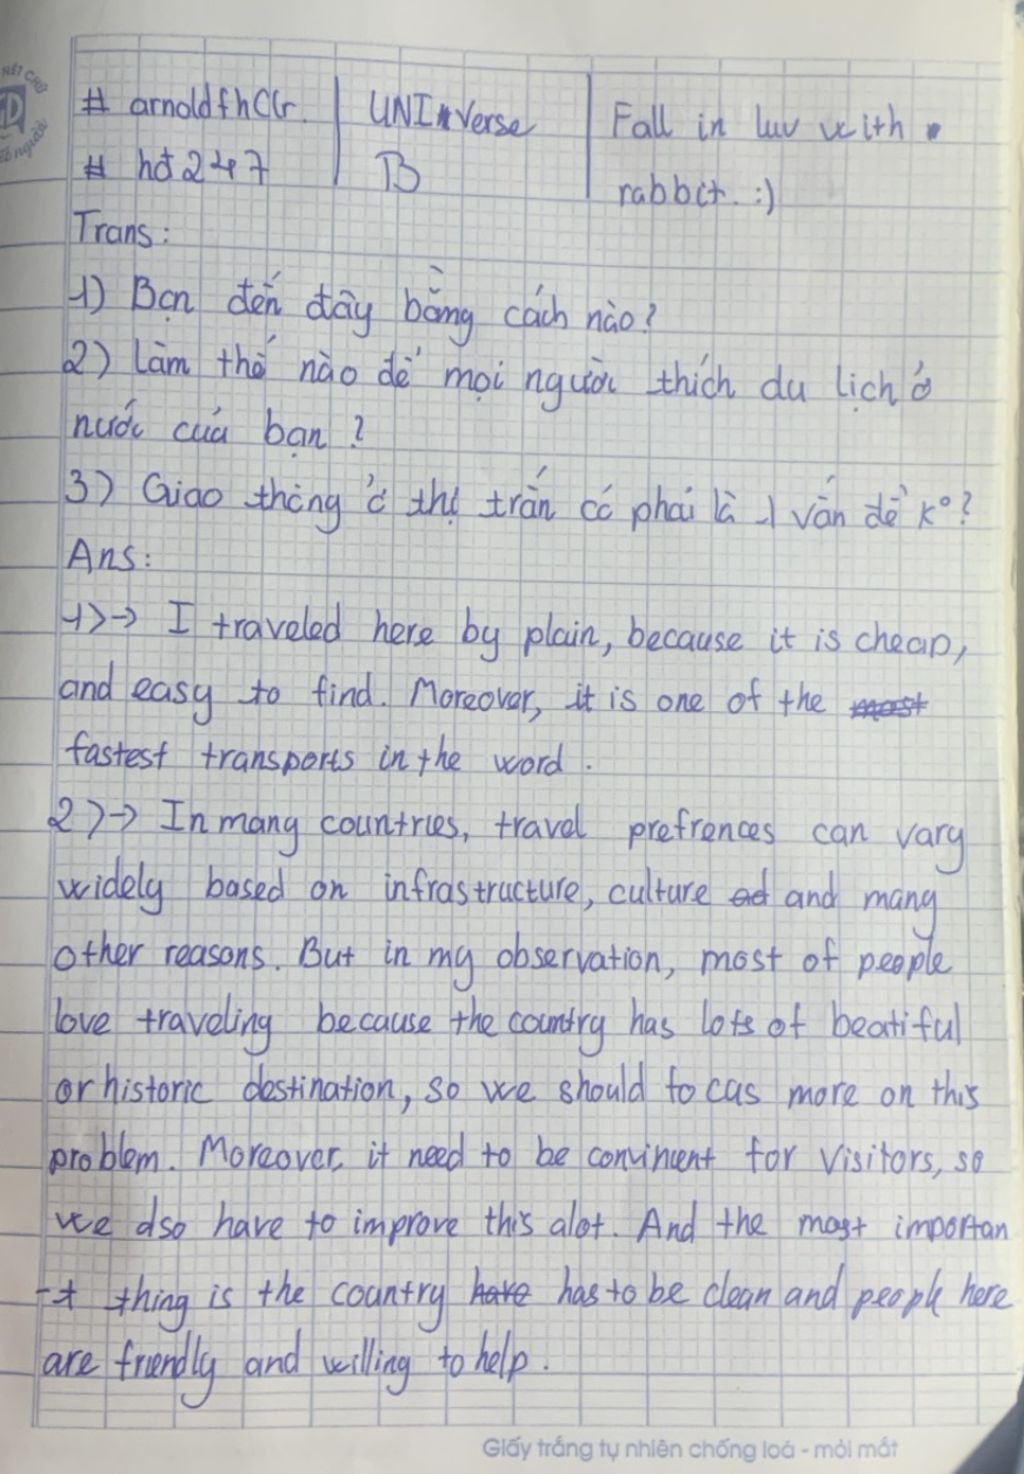 # arnoldfhCGr. | UNI*Verse | Fall in luv with
# hđ247 | B | rabbit. :)
Trans:
1) Bạn đến đây bằng cách nào?
2) Làm thế nào để mọi người thích du lịch ở
nước của bạn?
3) Giao thông ở thị trấn có phải là 1 vấn đề k°?
Ans:
1>→ I traveled here by plain, because it is cheap,
and easy to find. Moreover, it is one of the most
fastest transports in the word.
2>→ In many countries, travel prefrences can vary
widely based on infrastructure, culture ad and many
other reasons. But in my observation, most of people
love traveling because the country has lots of beatiful
or historic destination, so we should focus more on this
problem. Moreover, it need to be convinent for visitors, so
we also have to improve this alot. And the most importan
-t thing is the country have has to be clean and people here
are friendly and willing to help.
Giấy trắng tự nhiên chống loá - mỏi mắt